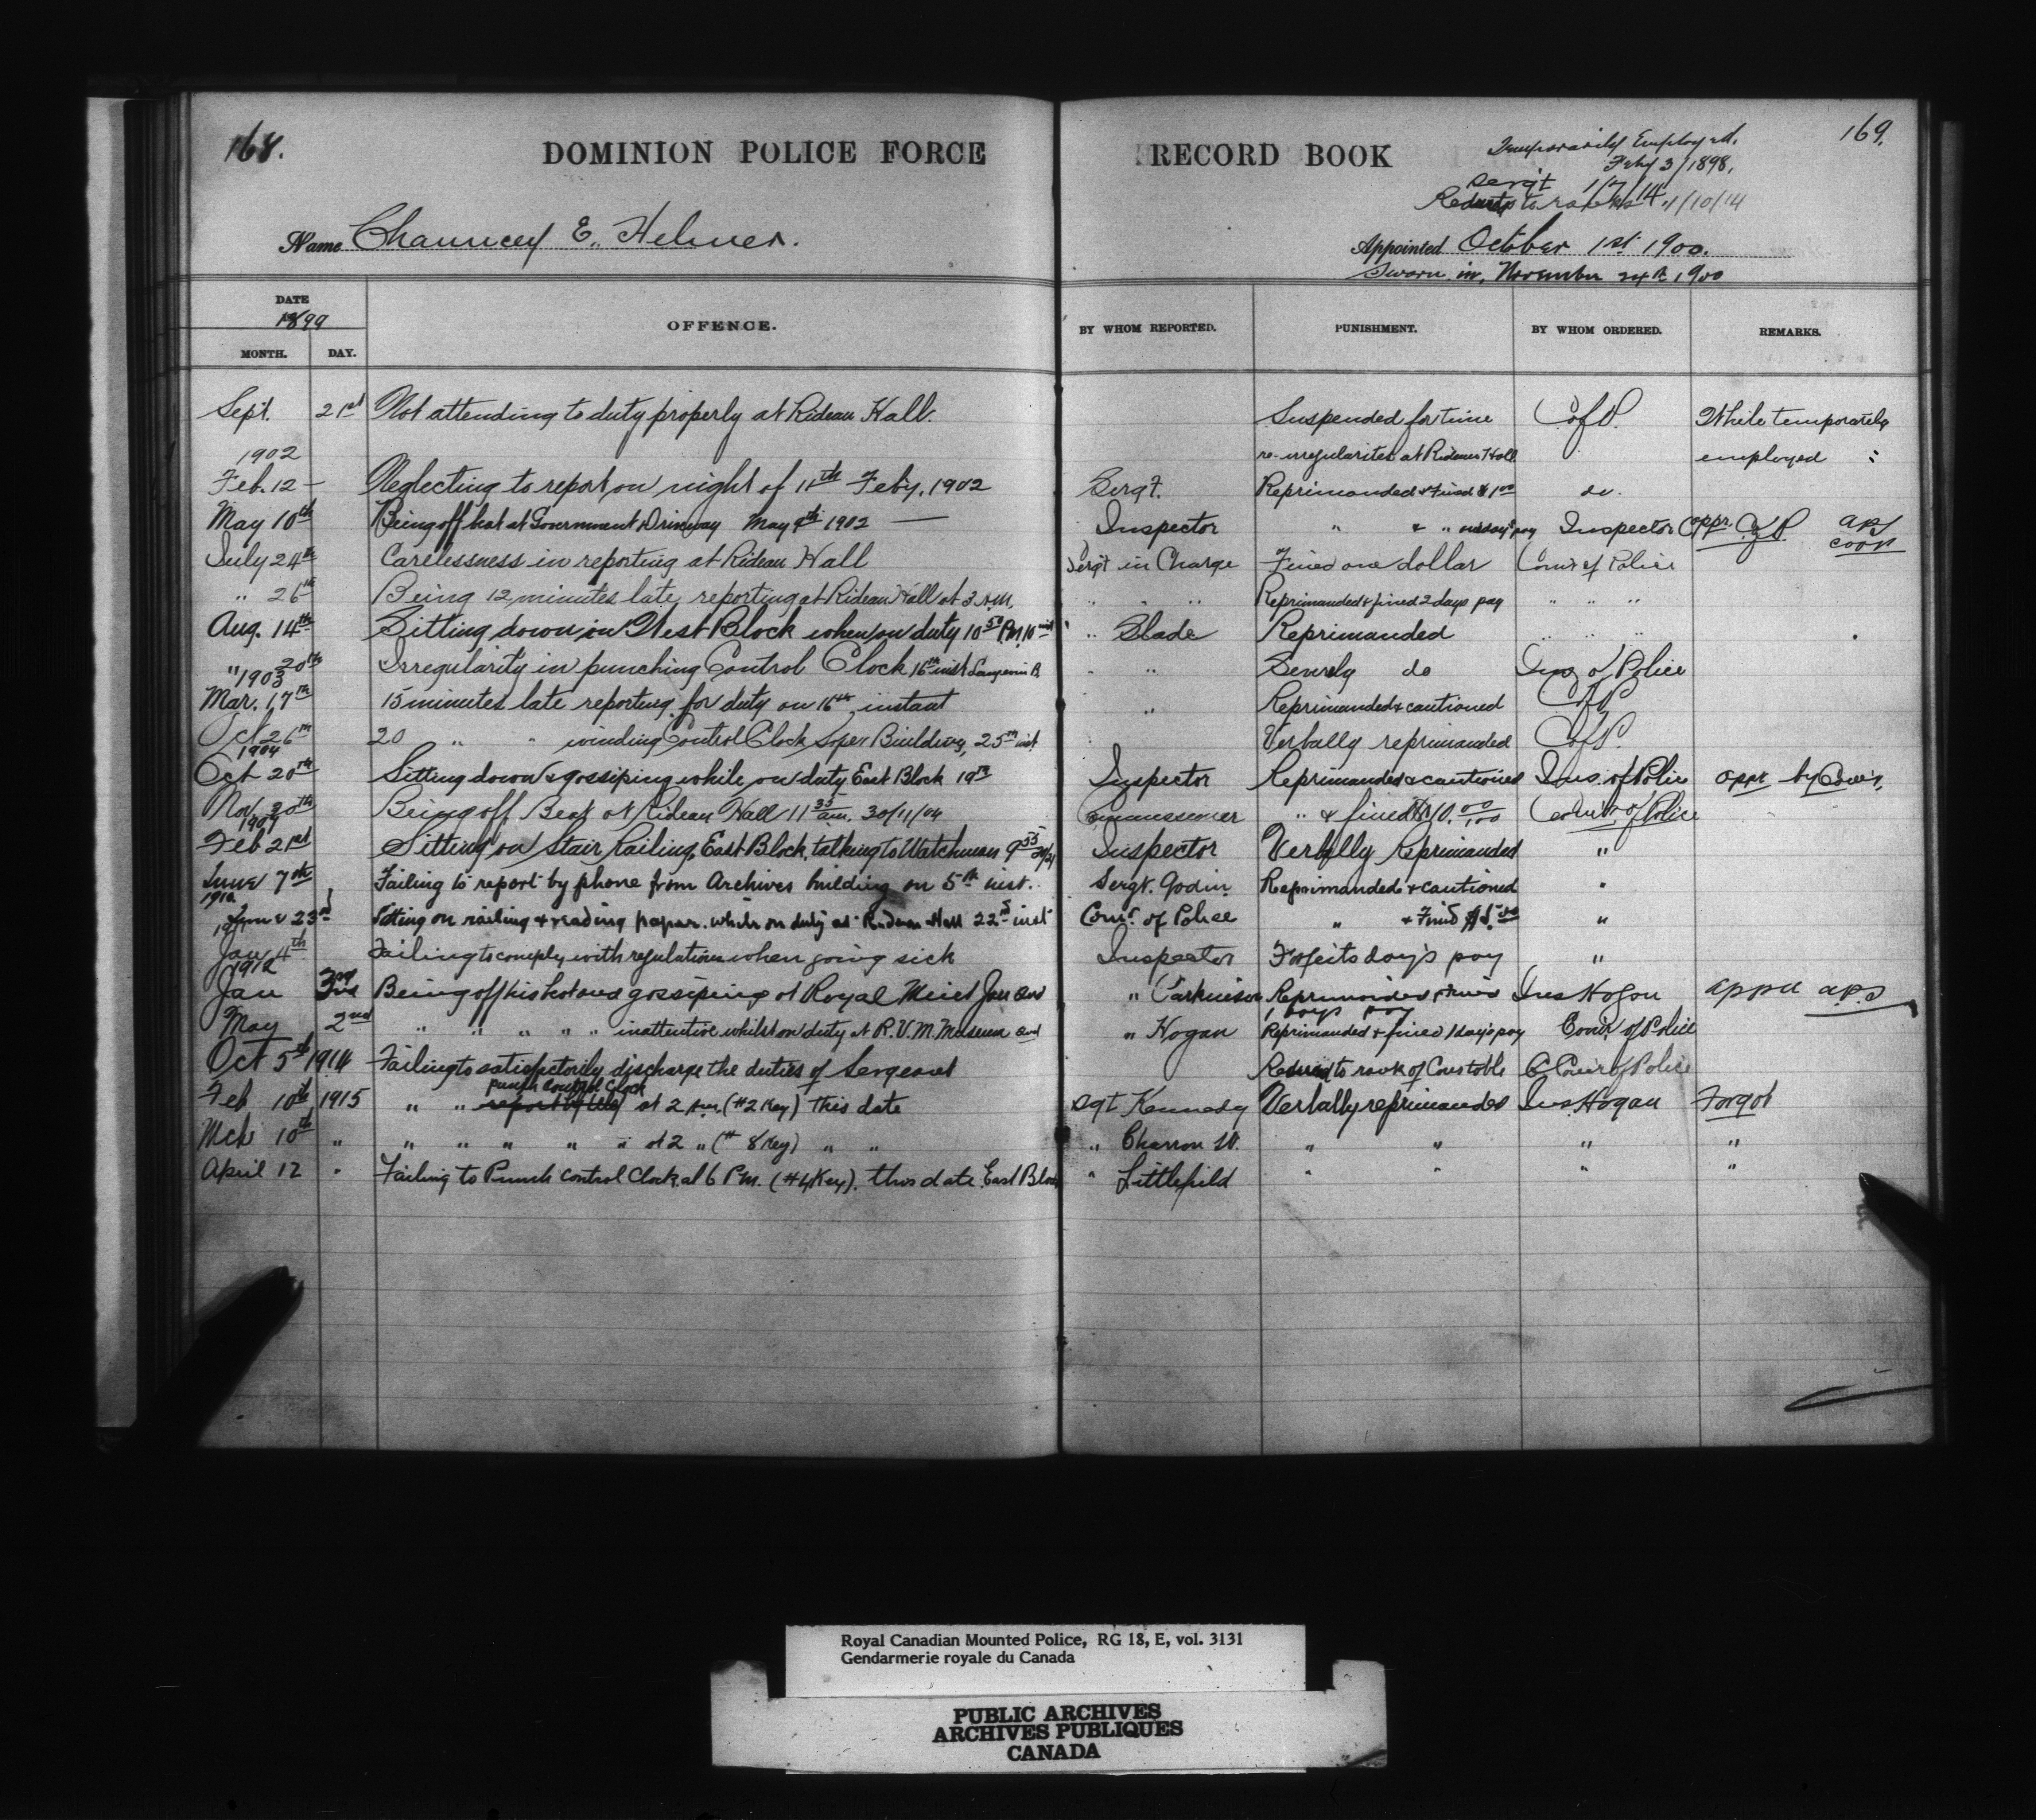 168.
DOMINION POLICE FORCE
RECORD BOOK
169.
Temporarily Employed.
Feby 3/1898.
Sergt 1/7/14
1/10/14
Name Chauncey E. Helmer.
Appointed October 1st 1900.
Sworn in, November 24th 1900
DATE
1899
MONTH. DAY.
OFFENCE.
BY WHOM REPORTED.
PUNISHMENT.
BY WHOM ORDERED.
REMARKS.
Sept. 21st Not attending to duty properly at Rideau Hall. Suspended for time C of P. While temporarily
1902 re-irregularites at Rideau Hall employed
Feb. 12 — Neglecting to report on night of 11th Feb'y, 1902 Sergt. Reprimanded & Fined $1 00 do.
May 10th Being off beat at Government Driveway May 9th 1902 — Inspector " & " pay Inspector appr. C of P
July 24th Carelessness in reporting at Rideau Hall Sergt in Charge Fined one dollar Comr of Police
" 26th Being 12 minutes late reporting at Rideau Hall at 3 A.M. " " " Reprimanded & fined 2 days pay " " "
Aug. 14th Sitting down in West Block when on duty 10 50 P.M. 10 inst " Slade Reprimanded " " "
" 20th Irregularity in punching Control Clock 16th inst Langevin B. " " Severely do Ins of Police
1903
Mar. 17th 15 minutes late reporting for duty on 16th instant " Reprimanded & cautioned C of P
Oct 26th 20 " " winding Control Clock Soper Building, 25th inst. Verbally reprimanded C of P.
1904
Oct 20th Sitting down & gossiping while on duty East Block 19th Inspector Reprimanded & cautioned Ins. of Police appr by Com'r,
Nov 30th Being off Beat at Rideau Hall 11 35 a.m. 30/11/04 Commissioner " & fined $10.00/100 Com'r of Police
1907
Feb 21st Sitting on Stair Railing, East Block, talking to Watchman 9 55 Inspector Verbally Reprimanded "
June 7th Failing to report by phone from Archives building on 5th inst. Sergt. Godin Reprimanded & cautioned "
1910
June 23rd Sitting on railing & reading paper while on duty at Rideau Hall 22nd inst Comr. of Police " & Fined $5.00 "
1911
Jan 4th Failing to comply with regulations when going sick Inspector Forfeits days pay "
1912
Jan 3rd Being off his beat and gossiping at Royal Mint Jan 2nd " Parkinson Reprimanded & fined Ins Hogan appd A.P.S
1 days pay
May 2nd " " " " " inattentive whilst on duty at R.V.M. Museum " Hogan Reprimanded & fined 1 days pay Comr of Police
Oct 5th 1914 Failing to satisfactorily discharge the duties of Sergeant Reduced to rank of Constable Comr of Police
punch Control Clock
Feb 10th 1915 " " at 2 Am. (#2 Key) this date Sgt Kennedy Verbally reprimanded Ins. Hogan Forgot
Mch 10th " " " " " " at 2 " (# 8 Key) " " " Charron W. " " " "
April 12 " Failing to Punch Control Clock at 6 P.M. (#4 Key). this date. East Block " Littlefield " " " "
Royal Canadian Mounted Police, RG 18, E, vol. 3131
Gendarmerie royale du Canada
PUBLIC ARCHIVES
ARCHIVES PUBLIQUES
CANADA